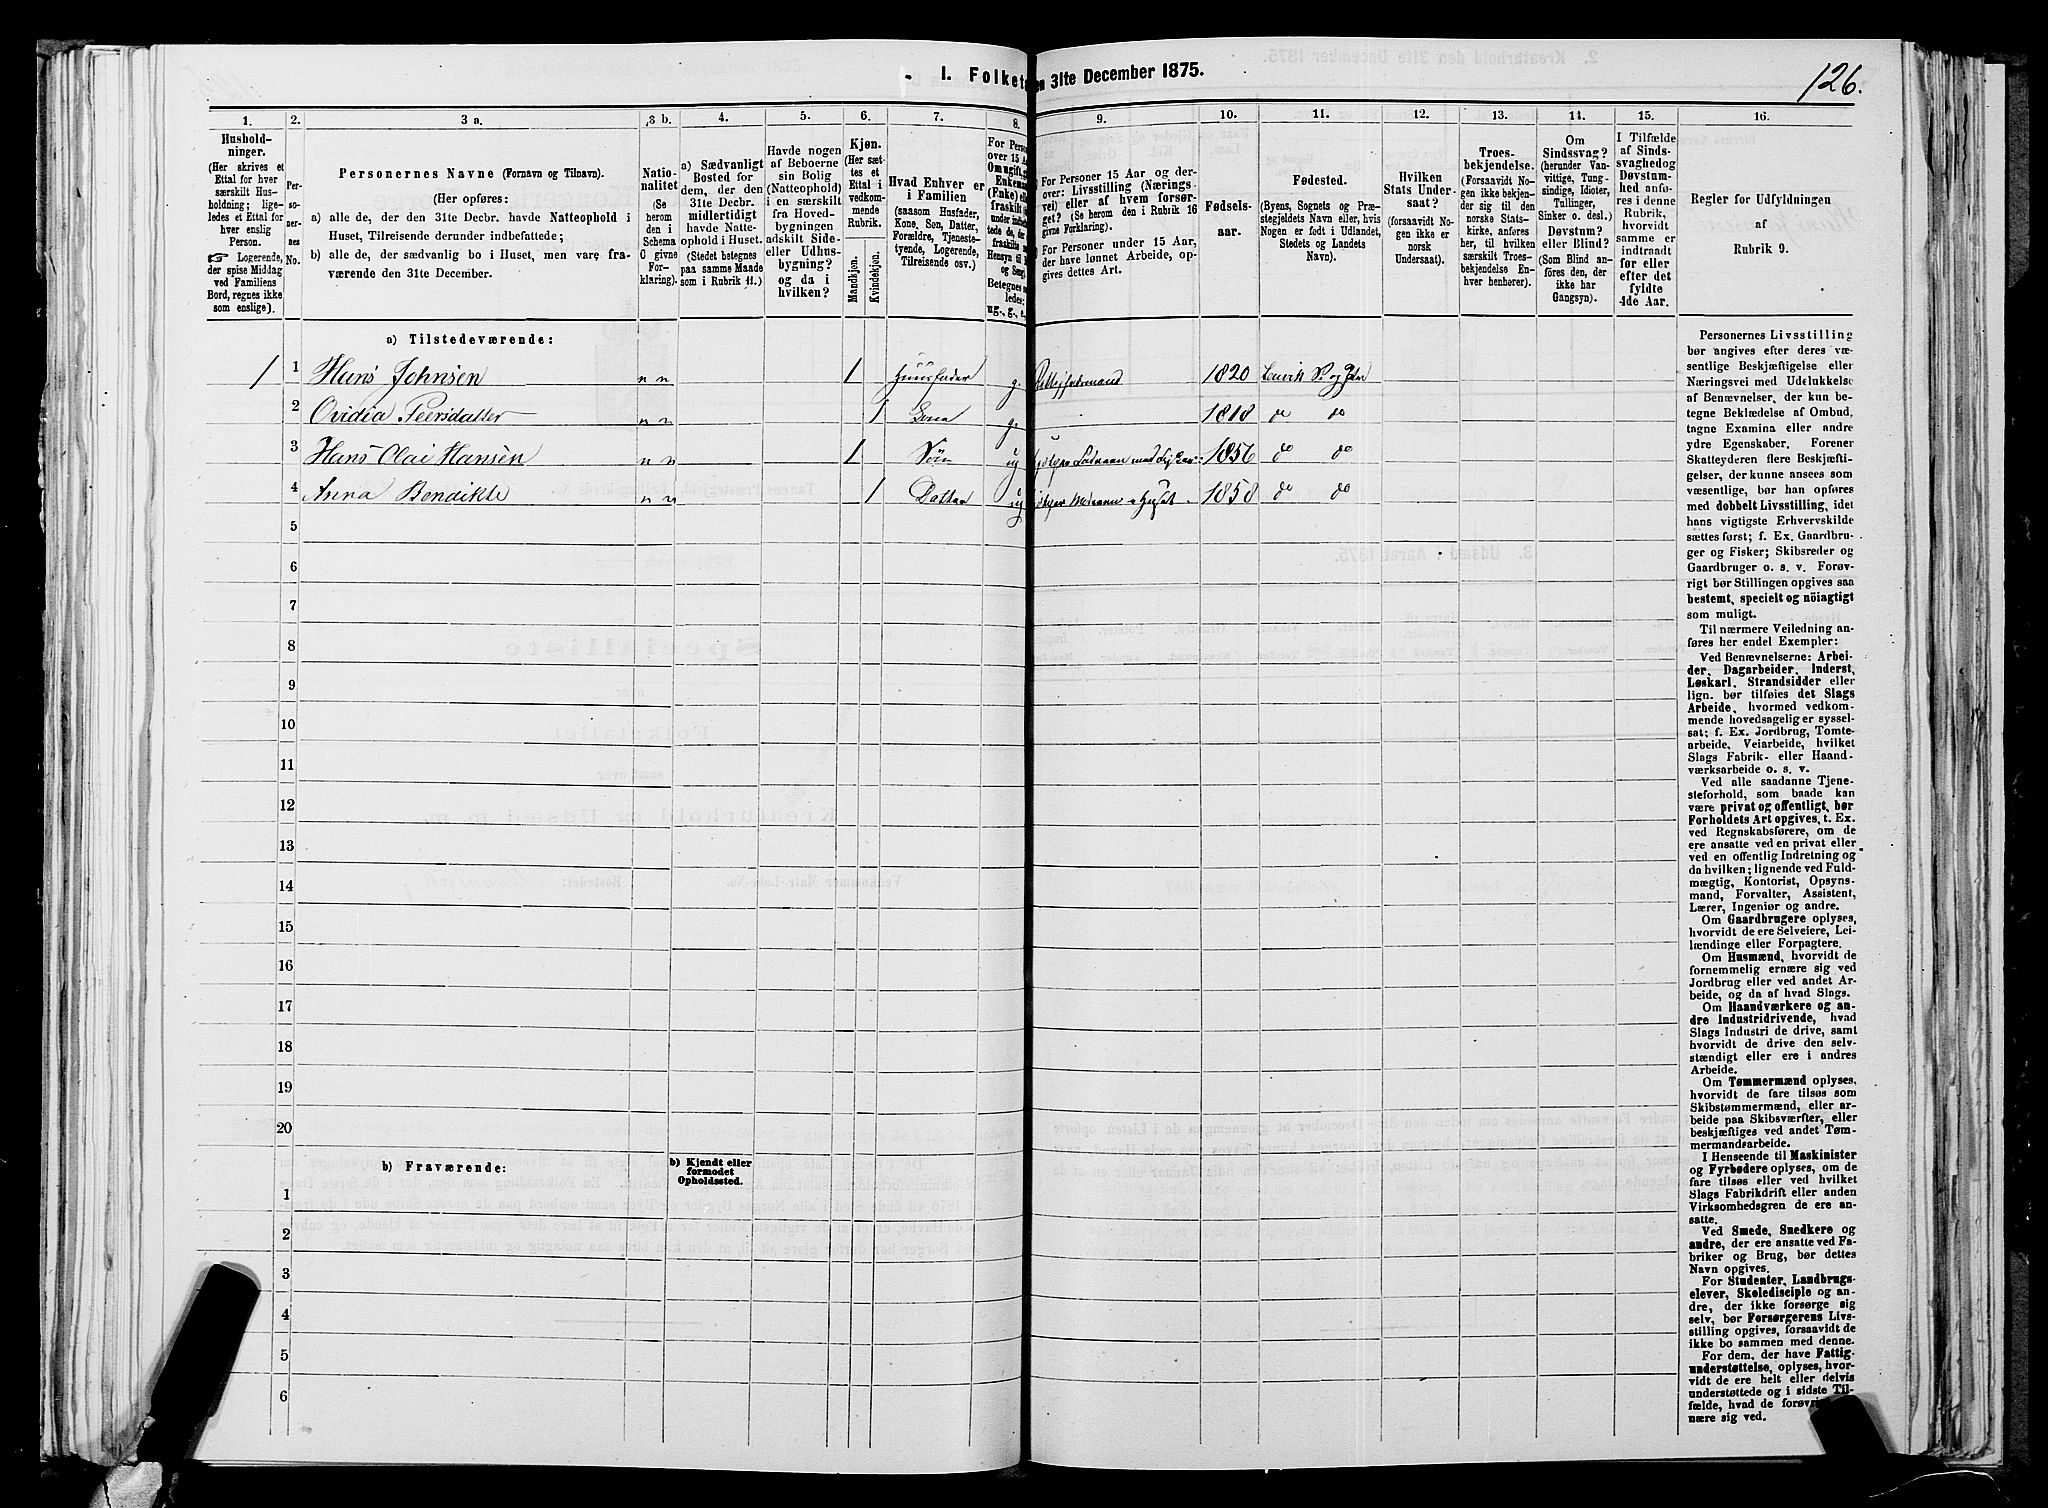 I. Folket
en 31te December 1875.
126.
1.
Hushold-
ninger.
(Her skrives et
Ettal for hver
særskilt Hus-
holdning; lige-
ledes et Ettal for
hver enslig
Person.
☞ Logerende,
der spise Middag
ved Familiens
Bord, regnes ikke
som enslige).
2.
Per-
so-
ner-
nes
No.
3 a.
Personernes Navne (Fornavn og Tilnavn).
(Her opføres:
a) alle de, der den 31te Decbr. havde Natteophold i
Huset, Tilreisende derunder indbefattede;
b) alle de, der sædvanlig bo i Huset, men vare fra-
værende den 31te December.
3 b.
Natio-
nalitet
(Se
herom
den i
Schema
C givne
For-
klaring).
4.
a) Sædvanligt
Bosted for
dem, der den
31te Decbr.
midlertidigt
havde Natte-
ophold i Huset.
(Stedet betegnes
paa samme Maade
som i Rubrik 11.)
5.
Havde nogen
af Beboerne
sin Bolig
(Natteophold)
i en særskilt
fra Hoved-
bygningen
adskilt Side-
eller Udhus-
bygning?
og da i
hvilken?
6.
Kjøn.
(Her sæt-
tes et
Ettal i
vedkom-
mende
Rubrik.
Mandkjøn.
Kvindekjøn.
7.
Hvad Enhver er
i Familien
(saasom Husfader,
Kone, Søn, Datter,
Forældre, Tjeneste-
tyende, Logerende,
Tilreisende osv.)
8.
9.
For Personer 15 Aar og der-
over: Livsstilling (Nærings-
vei) eller af hvem forsør-
get? (Se herom den i Rubrik 16
givne Forklaring).
For Personer under 15 Aar,
der have lønnet Arbeide, op-
gives dettes Art.
10.
Fødsels-
aar.
11.
Fødested.
(Byens, Sognets og Præ-
stegjeldets Navn eller, hvis
Nogen er født i Udlandet,
Stedets og Landets
Navn).
12.
Hvilken
Stats Under-
saat?
(forsaavidt No-
gen ikke er
norsk
Undersaat).
13.
Troes-
bekjendelse.
(Forsaavidt No-
gen ikke bekjen-
der sig til den
norske Stats-
kirke, anføres
her, til hvilken
særskilt Troes-
bekjendelse En-
hver henhører).
14.
Om
Sindssvag?
(herunder Van-
vittige, Tung-
sindige, Idioter,
Tullinger,
Sinker o. desl.)
Døvstum?
eller Blind?
(Som Blind an-
føres den, der
ikke har
Gangsyn).
15.
I Tilfælde
af Sinds-
svaghedog
Døvstum-
hed anfø-
res i denne
Rubrik,
hvorvidt
samme er
indtraadt
før eller
efter det
fyldte
4de Aar.
16.
Regler for Udfyldningen
af
Rubrik 9.
a) Tilstedeværende:
1 1 Hans Johnsen n n 1 Huusfader g. 1820
2 Ovidia Peersdatter n n 1 g. 1818 do do
3 Hans Olai Hansen n n 1 Søn ug 1856 do do
4 Anna Bendikte n n 1 Datter ug 1858 do do
5
6
7
8
9
10
11
12
13
14
15
16
17
18
19
20
b) Fraværende:
b) Kjendt eller
formodet
Opholdssted.
1
2
3
4
5
6
Personernes Livsstilling
bør angives efter deres væ-
sentlige Beskjæftigelse eller
Næringsvei med Udelukkelse
af Benævnelser, der kun be-
tegne Beklædelse af Ombud,
tagne Examina eller andre
ydre Egenskaber. Forener
Skatteyderen flere Beskjæfti-
gelser, der kunne ansees som
væsentlige, bør han opføres
med dobbelt Livsstilling, idet
hans vigtigste Erhvervskilde
sættes først; f. Ex. Gaardbru-
ger og Fisker; Skibsreder og
Gaardbruger o. s. v. Forøv-
rigt bør Stillingen opgives saa
bestemt, specielt og nöiagtigt
som muligt.
Til nærmere Veiledning an-
føres her endel Exempler:
Ved Benævnelserne: Arbei-
der, Dagarbeider, Inderst,
Løskarl, Strandsidder eller
lign. bør tilføies det Slags
Arbeide, hvormed vedkom-
mende hovedsagelig er syssel-
sat; f. Ex. Jordbrug, Tomte-
arbeide, Veiarbeide, hvilket
Slags Fabrik- eller Haand-
værksarbeide o. s. v.
Ved alle saadanne Tjene-
steforhold, som baade kan
være privat og offentligt, bør
Forholdets Art opgives, t. Ex.
ved Regnskabsførere, om de
ere ansatte ved en privat eller
ved en offentlig Indretning og
da hvilken; lignende ved Fuld-
mægtig, Kontorist, Opsyns-
mand, Forvalter, Assistent,
Lærer, Ingeniør og andre.
Om Gaardbrugere oplyses,
hvorvidt de ere Selveiere, Lei-
lændinge eller Forpagtere.
Om Husmænd, hvorvidt de
fornemmelig ernære sig ved
Jordbrug eller ved andet Ar-
beide, og da af hvad Slags.
Om Haandværkere og an-
dre Industridrivende, hvad
Slags Industri de drive, samt
hvorvidt de drive den selv-
stændigt eller ere i andres
Arbeide.
Om Tømmermænd oplyses,
hvorvidt de fare tilsøs som
Skibstømmermænd, eller ar-
beide paa Skibsværfter, eller
beskjæftiges ved andet Tøm-
mermandsarbeide.
I Henseende til Maskinister
og Fyrbødere oplyses, om de
fare tilsøs eller ved hvilket
Slags Fabrikdrift eller anden
Virksomhedsgren de ere an-
satte.
Ved Smede, Snedkere og
andre, der ere ansatte ved Fa-
briker og Brug, bør dettes
Navn opgives.
For Studenter, Landbrugs-
elever, Skoledisciple og an-
dre, der ikke forsørge sig
selv, bør Forsørgerens Livs-
stilling opgives, forsaavidt de
ikke bo sammen med denne.
For dem, der have Fattig-
understøttelse, oplyses, hvor-
vidt de ere helt eller delvis
understøttede og i sidste Til-
fælde, hvad de forøvri
nære sig ved.